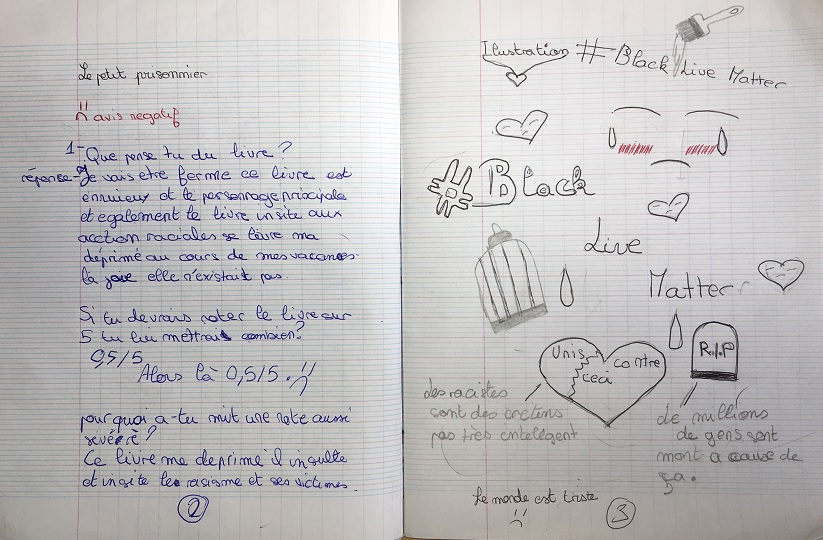 Le petit prisonnier
avis negatif
1- Que pense tu du livre ?
réponse- Je vais etre ferme ce livre est
ennuieux et le personnage principale
et egalement le livre insite aux
acction raciales se livre ma
déprimé au cours de mes vacances
la joie elle n'existait pas.
Si tu devrais noter le livre sur
5 tu lui mettrais combien?
0,5/5
Alors là 0,5/5.
pourquoi a-tu mit une note aussi
sevére ?
Ce livre me deprime il insulte
et insite le racisme et ses victimes.
2
Ilustration # Black Live Matter
#Black
Live
Matter
Unis contre
ceci
R.I.P
des racistes
sont des cretins
pas très intelligent
de millions
de gens sont
mort a cause de
ça.
Le monde est triste
3